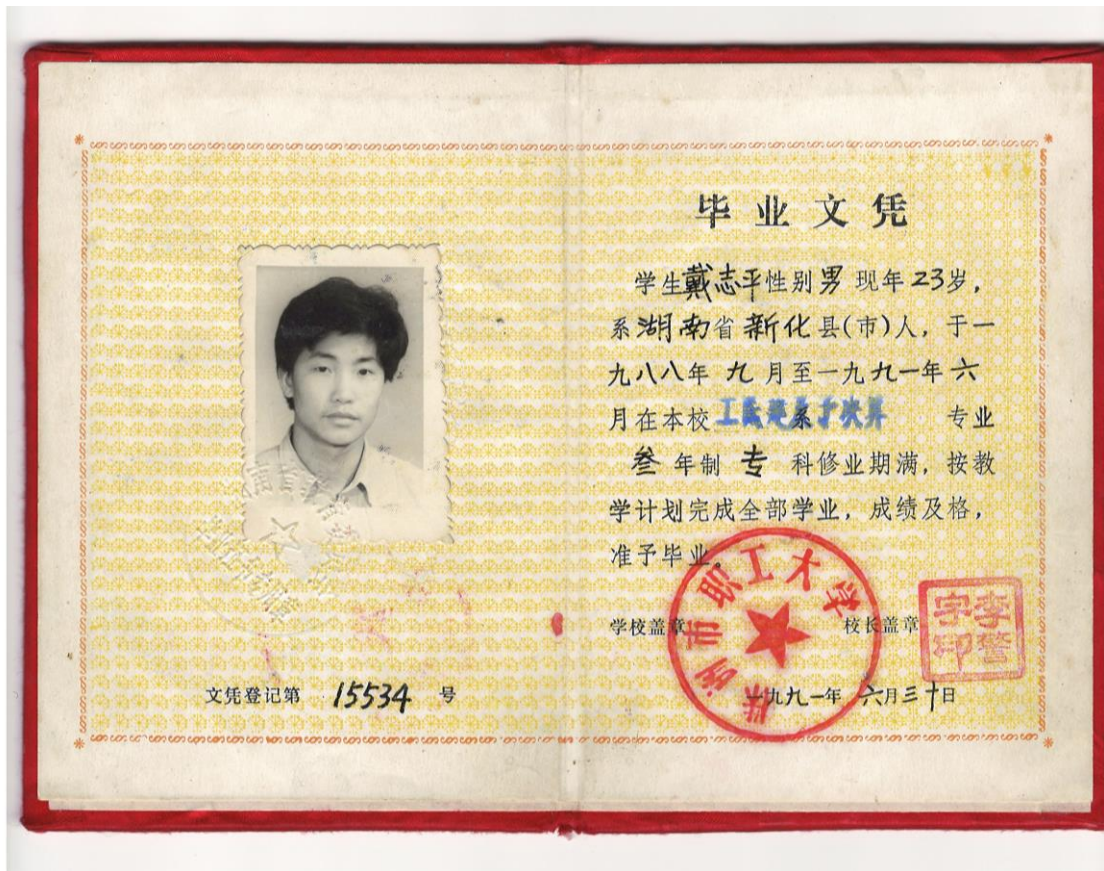 毕业文凭
学生戴志平性别男 现年23岁，
系湖南省新化县(市)人，于一
九八八年 九 月至一九九一年 六
月在本校 工 专业
叁 年制 专 科修业期满，按教
学计划完成全部学业，成绩及格，
准予毕业。
市职工大学
学校盖章
校长盖章
李警
字印
一九九一年 六月三十日
文凭登记第 15534 号